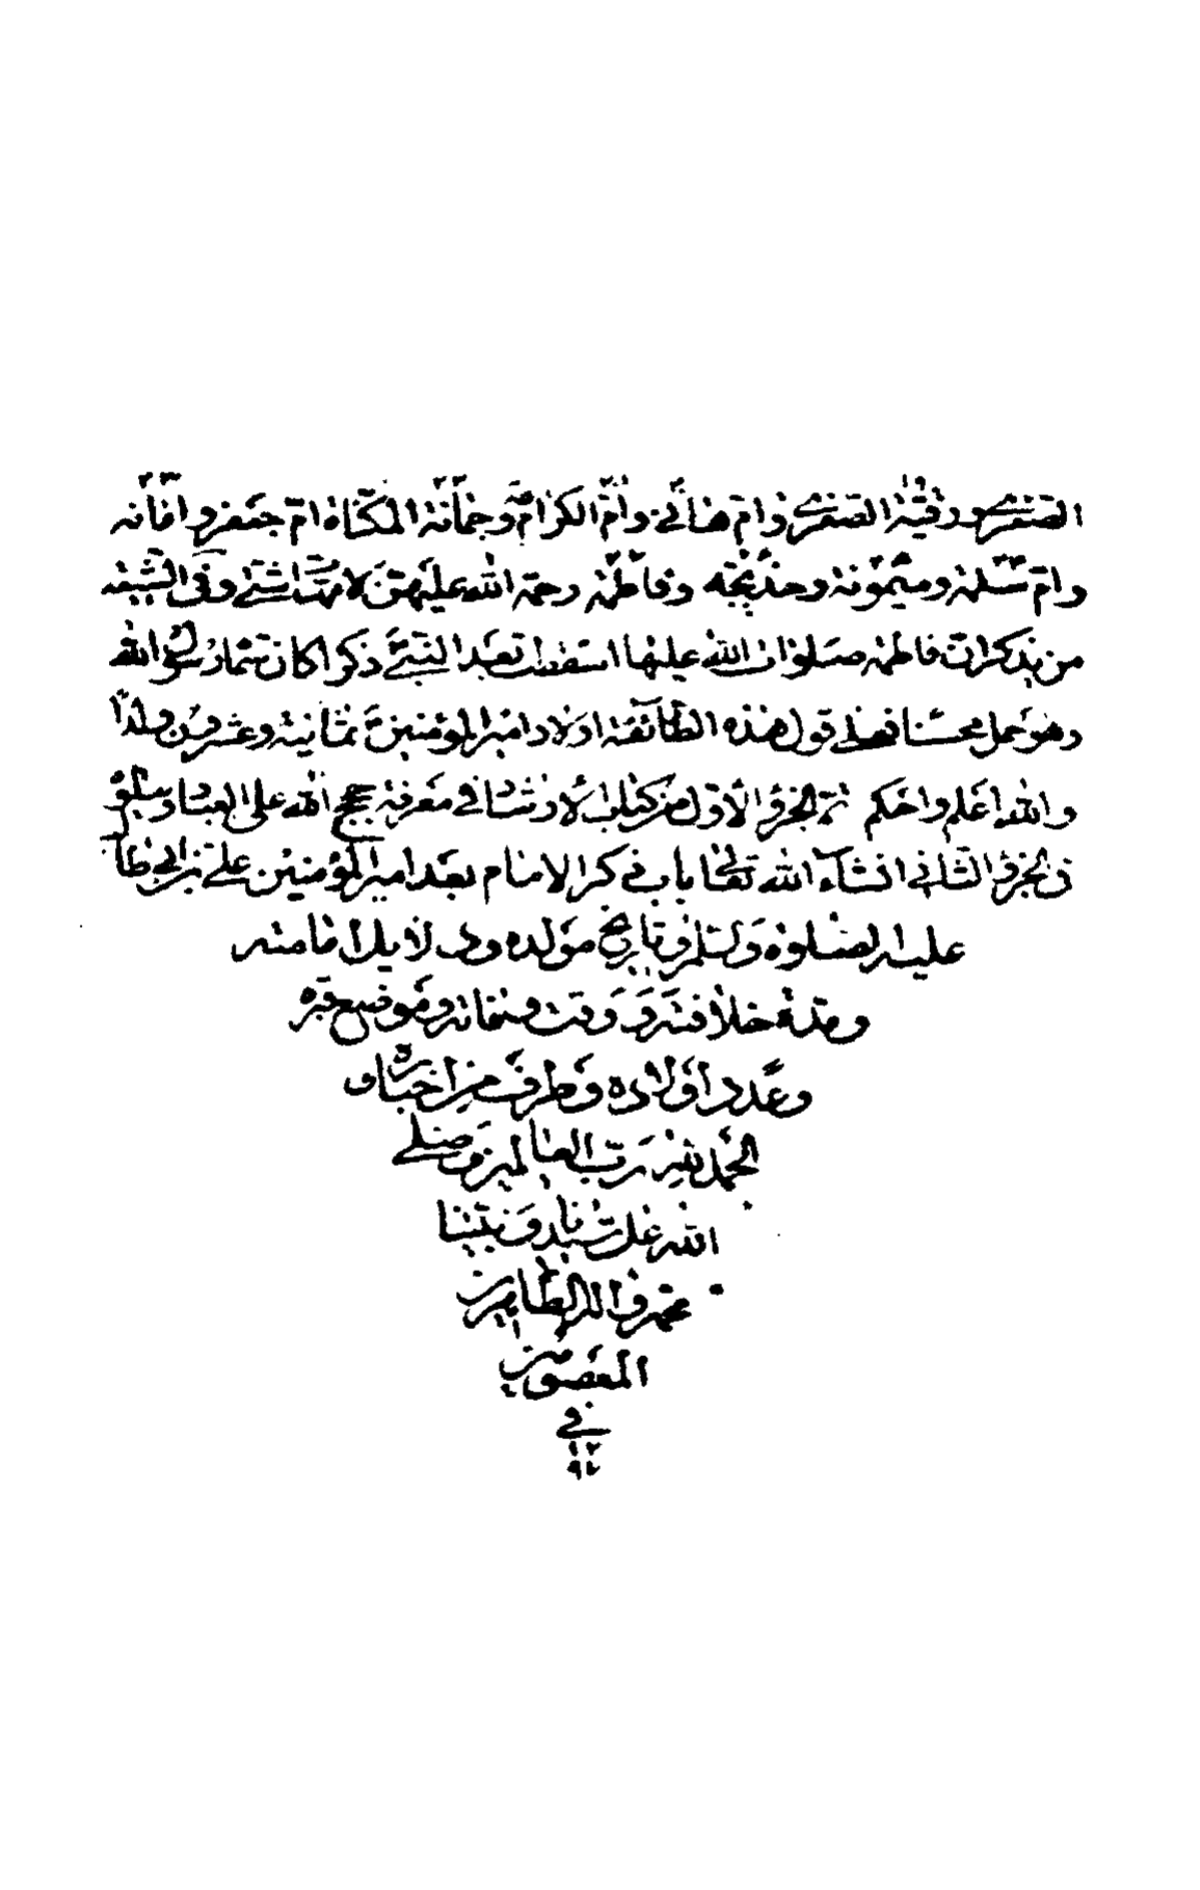 الصغرى ورقية الصغرى وام هاني وام الكرام وجمانة المكناة ام جعفر وامامه
وام سلمة وميمونة وخديجه وفاطمة رحمة الله عليهن لامهات شتى وفي الشيعه
من يذكر ان فاطمة صلوات الله عليها اسقطت بعد النبي ذكرا كان سماه رسول الله
وهو حمل محسنا فعلى قول هذه الطائفة اولاد امير المؤمنين ثمانية وعشرون ولدا
والله اعلم واحكم تم الجزؤ الاول من كتاب الارشاد في معرفة حجج الله على العباد ويتلوه
في الجزؤ الثاني انشاء الله تعالى باب ذكر الامام بعد امير المؤمنين علي بن ابي طالب
عليه الصلوة والسلم وتاريخ مولده ودلايل امامته
ومدة خلافته ووقت وفاته وموضع قبره
وعدد اولاده وطرف من اخباره و
الحمد لله رب العالمين وصلى
الله على سيدنا ونبينا
محمد واله الطاهرين
المعصومين
في